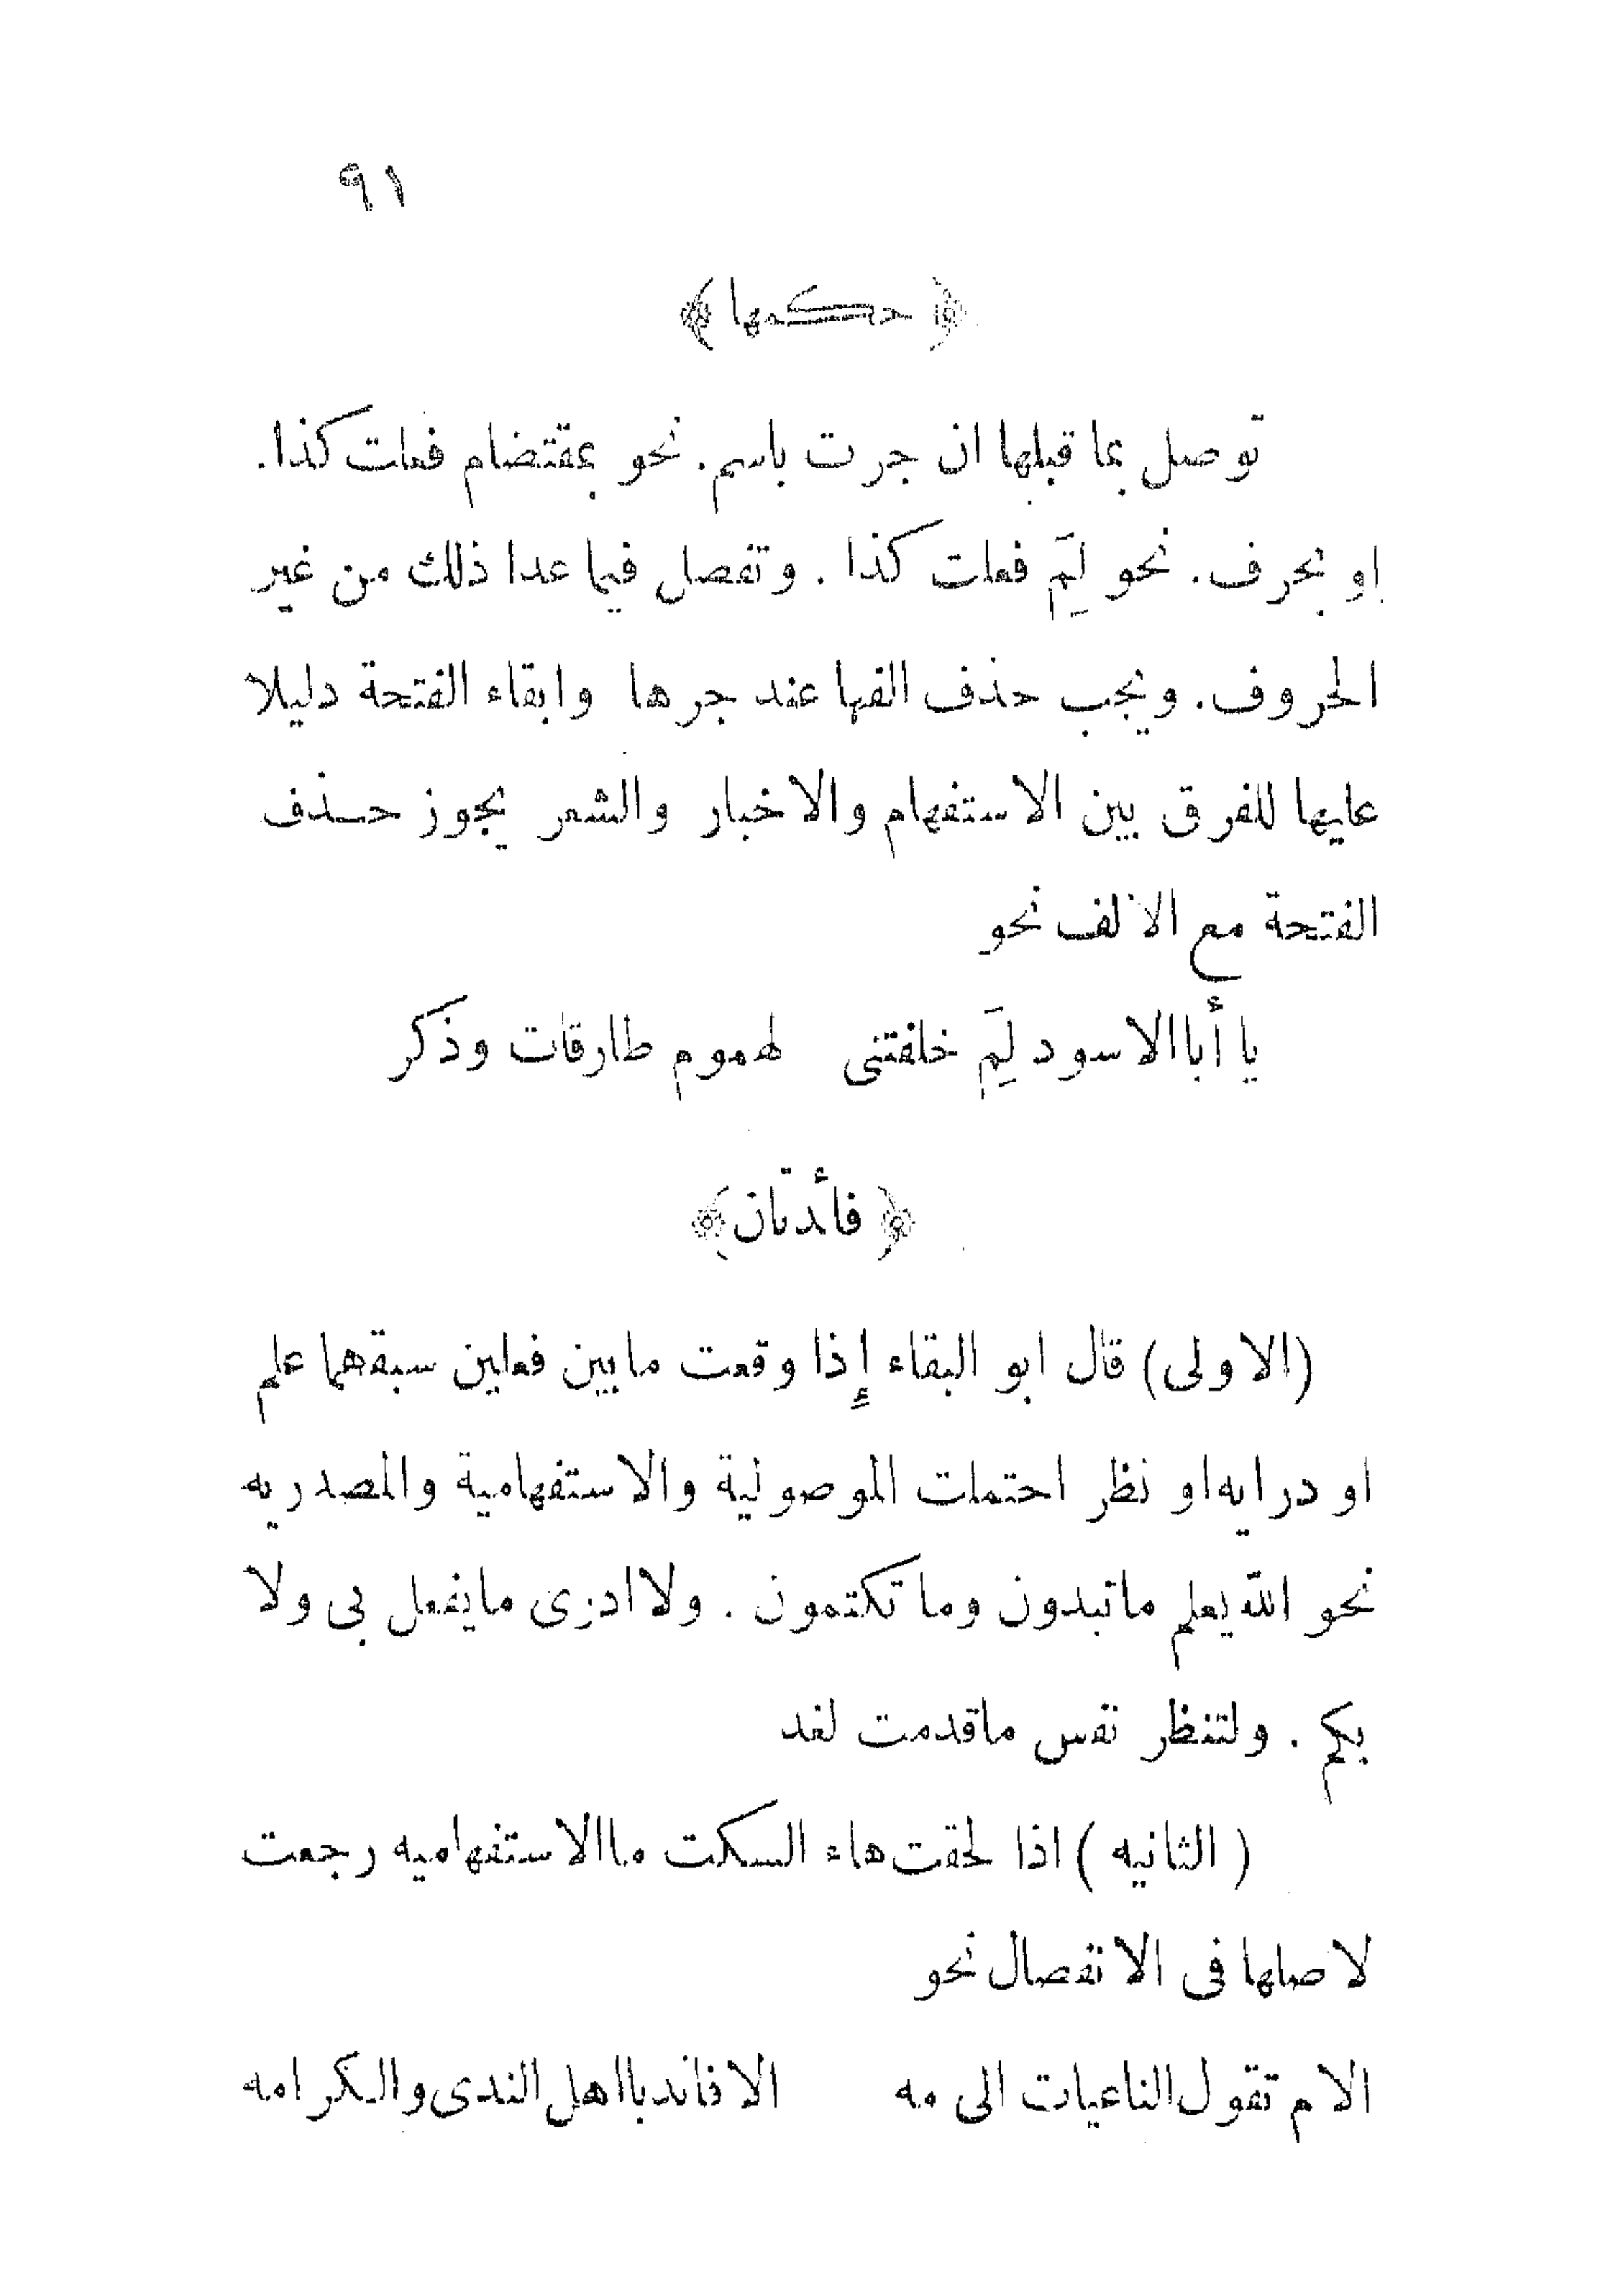 ٩١
﴿ حكمها ﴾
توصل بما قبلها ان جرت باسم. نحو بمقتضام فعلت كذا.
او بحرف. نحو لِمَ فعلت كذا . وتفصل فيما عدا ذلك من غير
الحروف. ويجب حذف الفها عند جرها وابقاء الفتحة دليلا
عليها للفرق بين الاستفهام والاخبار والشعر يجوز حذف
الفتحة مع الالف نحو
يا أبا الاسود لِمَ خلفتنى لهموم طارقات وذكر
﴿ فأئدتان ﴾
(الاولى) قال ابو البقاء إذا وقعت ما بين فعلين سبقهما علم
او درايه او نظر احتملت الموصولية والاستفهامية والمصدريه
نحو الله يعلم ما تبدون وما تكتمون . ولا ادرى ما يفعل بى ولا
بكم . ولتنظر نفس ما قدمت لغد
( الثانيه ) اذا لحقت هاء السكت ما الاستفهاميه رجعت
لاصلها فى الانفصال نحو
الام تقول الناعيات الى مه الا فاندبا اهل الندى والكرامه